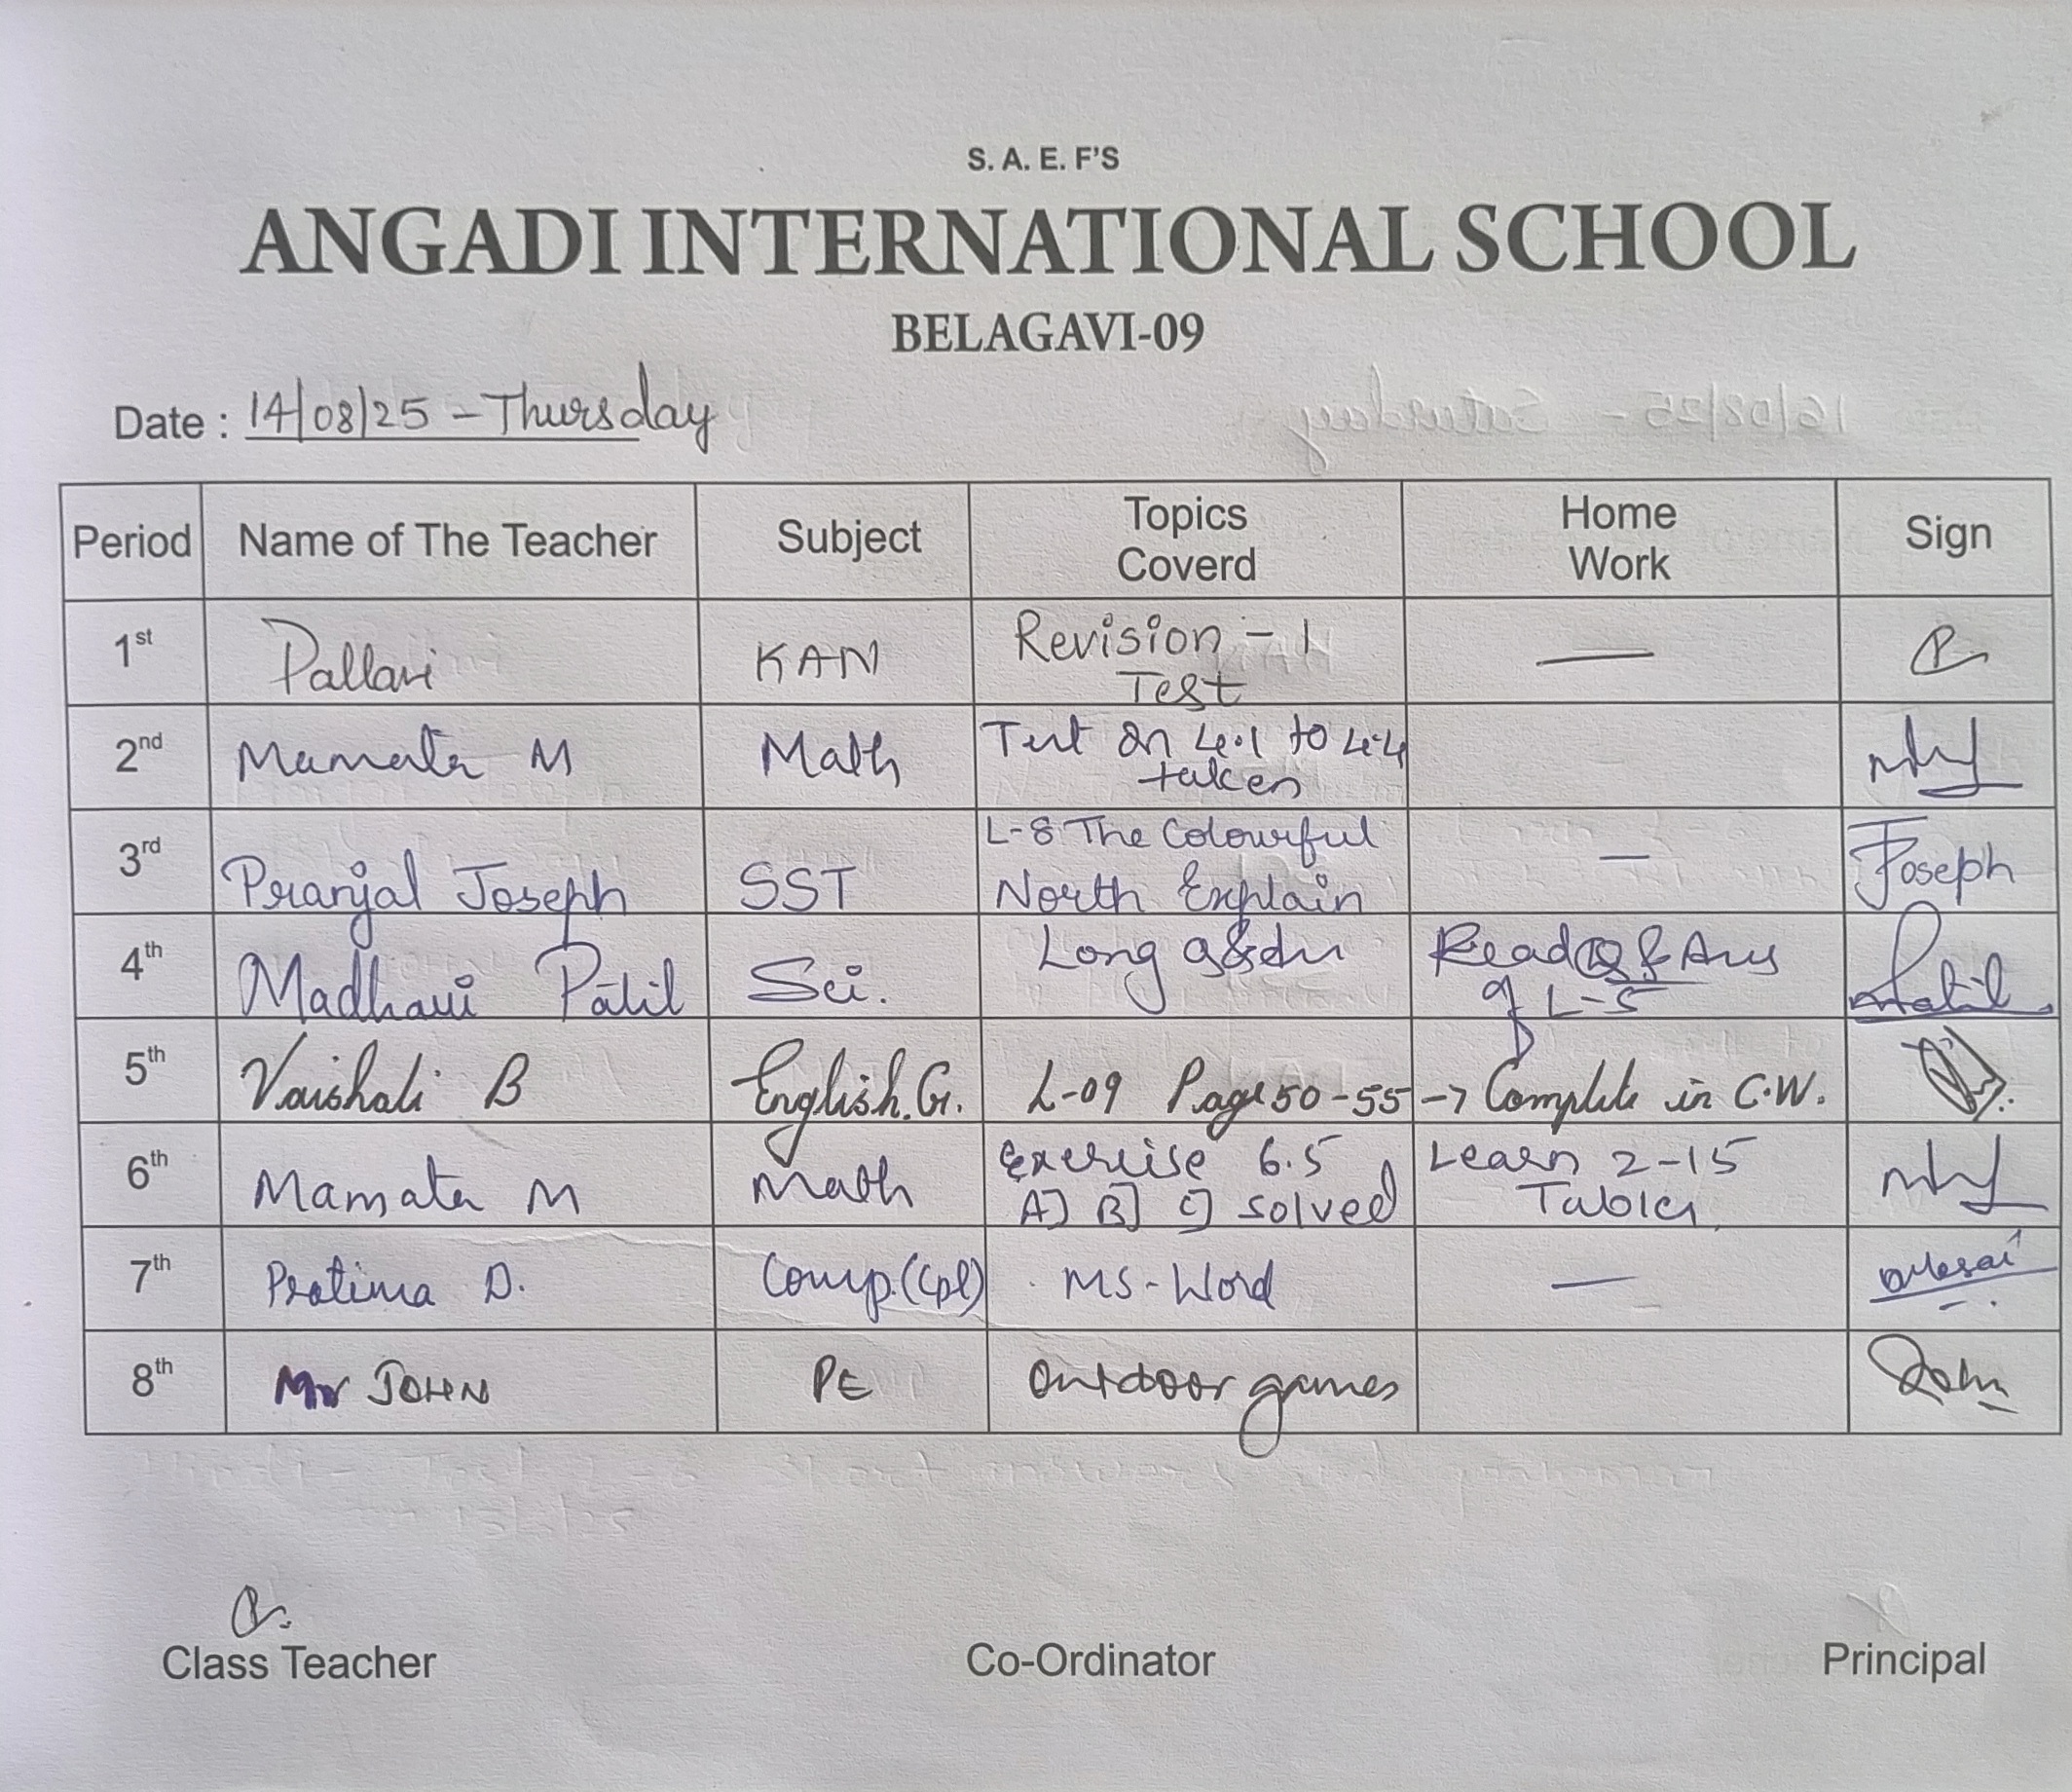 S. A. E. F'S
ANGADI INTERNATIONAL SCHOOL
BELAGAVI-09
Date : 14/08/25 - Thursday
Period Name of The Teacher Subject Topics Coverd Home Work Sign
1st Pallavi KAN Revision - 1 —
Test
2nd Mamata M Math Test on 4.1 to 4.4
taken
3rd Pranjal Joseph SST L-8 The Colourful — Joseph
North Explain
4th Madhavi Patil Sci. Long Read Q & Ans Patil
of L-5
5th Vaishali B English.Gr. L-09 Page 50-55 → Complete in C.W.
6th Mamata M Math Exercise 6.5 Learn 2-15
A] B] C] solved Tables
7th Pratima D. Comp.(Cpl) MS-Word — Desai
8th Mr JOHN PE Outdoor games John
Class Teacher Co-Ordinator Principal